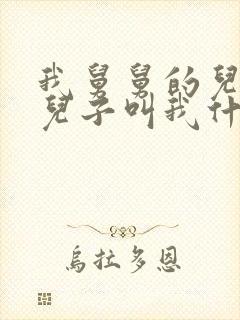 我舅舅的兒
兒子叫我什
烏拉多恩